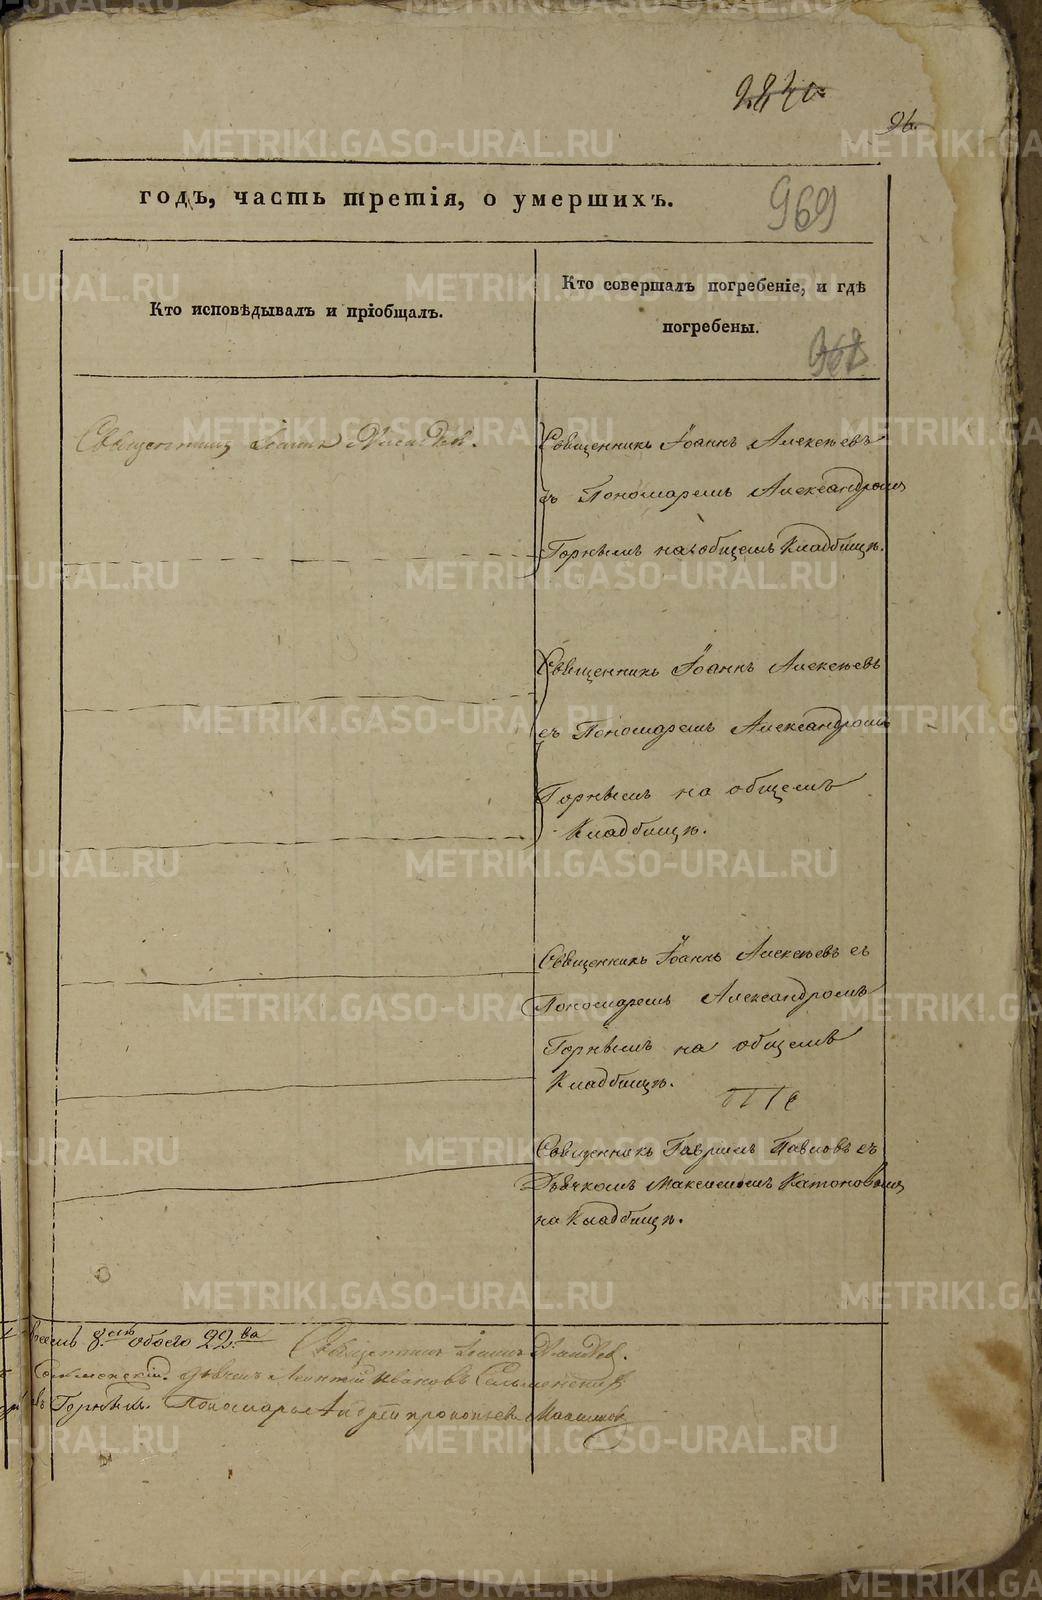 96.
годъ, часть третія, о умершихъ.
969
Кто исповѣдывалъ и пріобщалъ.
Кто совершалъ погребеніе, и гдѣ
погребены.
968
Священникъ Іоаннъ
Священникъ Іоаннъ Алексѣевъ
съ Пономаремъ Александромъ
Горнѣмъ на общемъ Кладбищѣ.
Священникъ Іоаннъ Алексѣевъ
съ Пономаремъ Александромъ
Горнѣмъ на общемъ
Кладбищѣ.
Священникъ Іоаннъ Алексѣевъ съ
Пономаремъ Александромъ
Горнѣмъ на общемъ
Кладбищѣ.
Священникъ Гавріилъ Павловъ съ
Дьячкомъ Максимомъ Катоновымъ
на Кладбищѣ.
обоего 22.ва Священникъ Іоаннъ
Леонтій Ивановъ
Пономарь Андрей Прокопьевъ
METRIKI.GASO-URAL.RU